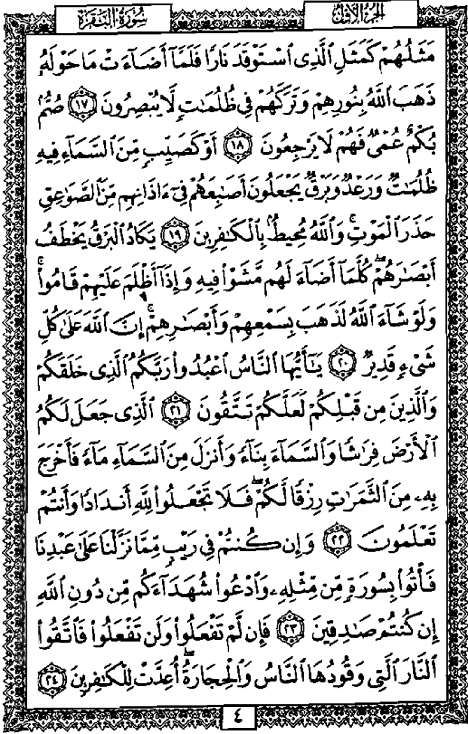 سورة البقرة
الجزء الأول
مَثَلُهُمْ كَمَثَلِ ٱلَّذِى ٱسْتَوْقَدَ نَارًا فَلَمَّآ أَضَآءَتْ مَا حَوْلَهُۥ
ذَهَبَ ٱللَّهُ بِنُورِهِمْ وَتَرَكَهُمْ فِى ظُلُمَٰتٍ لَّا يُبْصِرُونَ ١٧ صُمٌّۢ
بُكْمٌ عُمْىٌ فَهُمْ لَا يَرْجِعُونَ ١٨ أَوْ كَصَيِّبٍ مِّنَ ٱلسَّمَآءِ فِيهِ
ظُلُمَٰتٌ وَرَعْدٌ وَبَرْقٌ يَجْعَلُونَ أَصَٰبِعَهُمْ فِىٓ ءَاذَانِهِم مِّنَ ٱلصَّوَٰعِقِ
حَذَرَ ٱلْمَوْتِ ۚ وَٱللَّهُ مُحِيطٌۢ بِٱلْكَٰفِرِينَ ١٩ يَكَادُ ٱلْبَرْقُ يَخْطَفُ
أَبْصَٰرَهُمْ ۖ كُلَّمَآ أَضَآءَ لَهُم مَّشَوْا۟ فِيهِ وَإِذَآ أَظْلَمَ عَلَيْهِمْ قَامُوا۟ ۚ
وَلَوْ شَآءَ ٱللَّهُ لَذَهَبَ بِسَمْعِهِمْ وَأَبْصَٰرِهِمْ ۚ إِنَّ ٱللَّهَ عَلَىٰ كُلِّ
شَىْءٍ قَدِيرٌ ٢٠ يَٰٓأَيُّهَا ٱلنَّاسُ ٱعْبُدُوا۟ رَبَّكُمُ ٱلَّذِى خَلَقَكُمْ
وَٱلَّذِينَ مِن قَبْلِكُمْ لَعَلَّكُمْ تَتَّقُونَ ٢١ ٱلَّذِى جَعَلَ لَكُمُ
ٱلْأَرْضَ فِرَٰشًا وَٱلسَّمَآءَ بِنَآءً وَأَنزَلَ مِنَ ٱلسَّمَآءِ مَآءً فَأَخْرَجَ
بِهِۦ مِنَ ٱلثَّمَرَٰتِ رِزْقًا لَّكُمْ ۖ فَلَا تَجْعَلُوا۟ لِلَّهِ أَندَادًا وَأَنتُمْ
تَعْلَمُونَ ٢٢ وَإِن كُنتُمْ فِى رَيْبٍ مِّمَّا نَزَّلْنَا عَلَىٰ عَبْدِنَا
فَأْتُوا۟ بِسُورَةٍ مِّن مِّثْلِهِۦ وَٱدْعُوا۟ شُهَدَآءَكُم مِّن دُونِ ٱللَّهِ
إِن كُنتُمْ صَٰدِقِينَ ٢٣ فَإِن لَّمْ تَفْعَلُوا۟ وَلَن تَفْعَلُوا۟ فَٱتَّقُوا۟
ٱلنَّارَ ٱلَّتِى وَقُودُهَا ٱلنَّاسُ وَٱلْحِجَارَةُ ۖ أُعِدَّتْ لِلْكَٰفِرِينَ ٢٤
٤